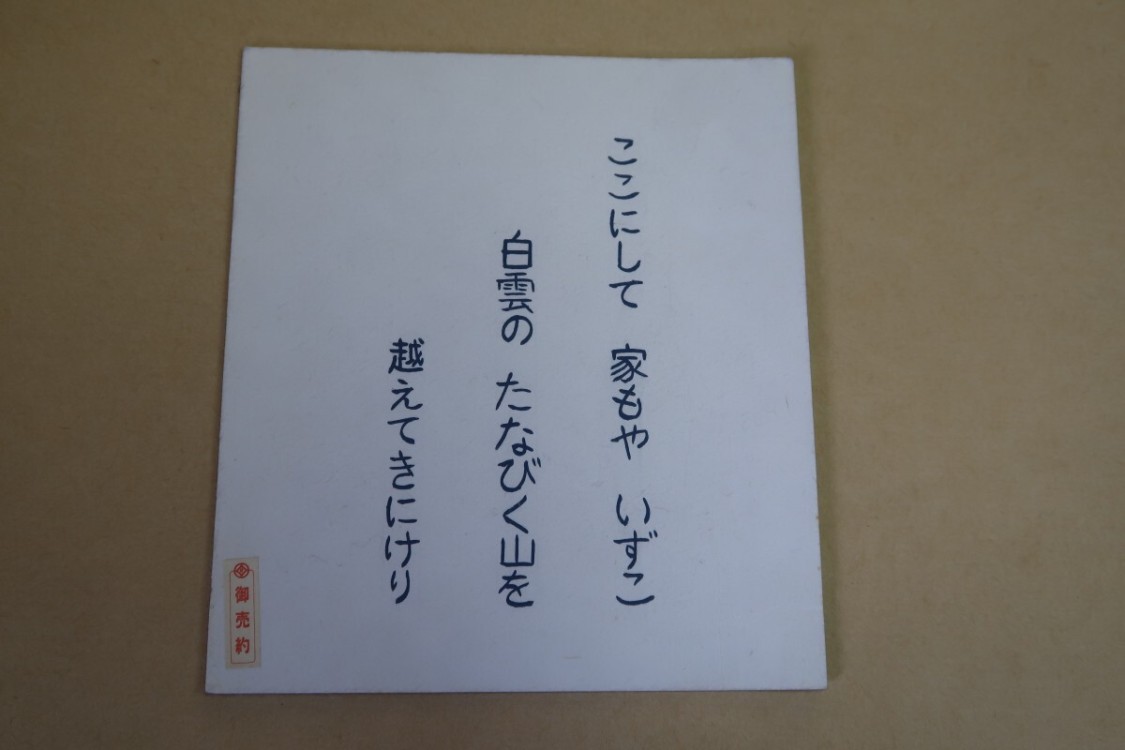 ここにして 家もや いずこ
白雲の たなびく山を
越えてきにけり
御売約